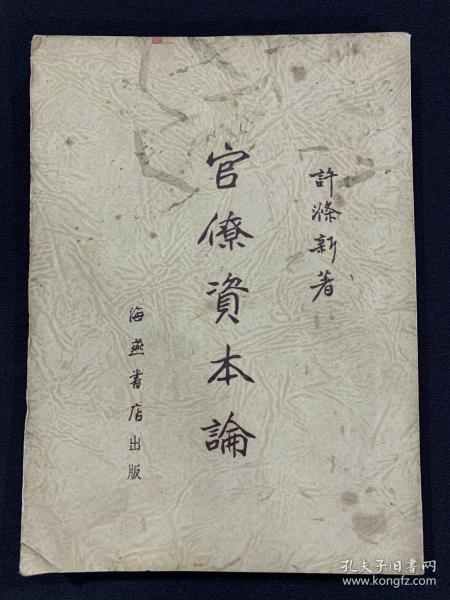 許滌新著
官僚資本論
海燕書店出版
孔夫子旧书网
www.kongfz.com